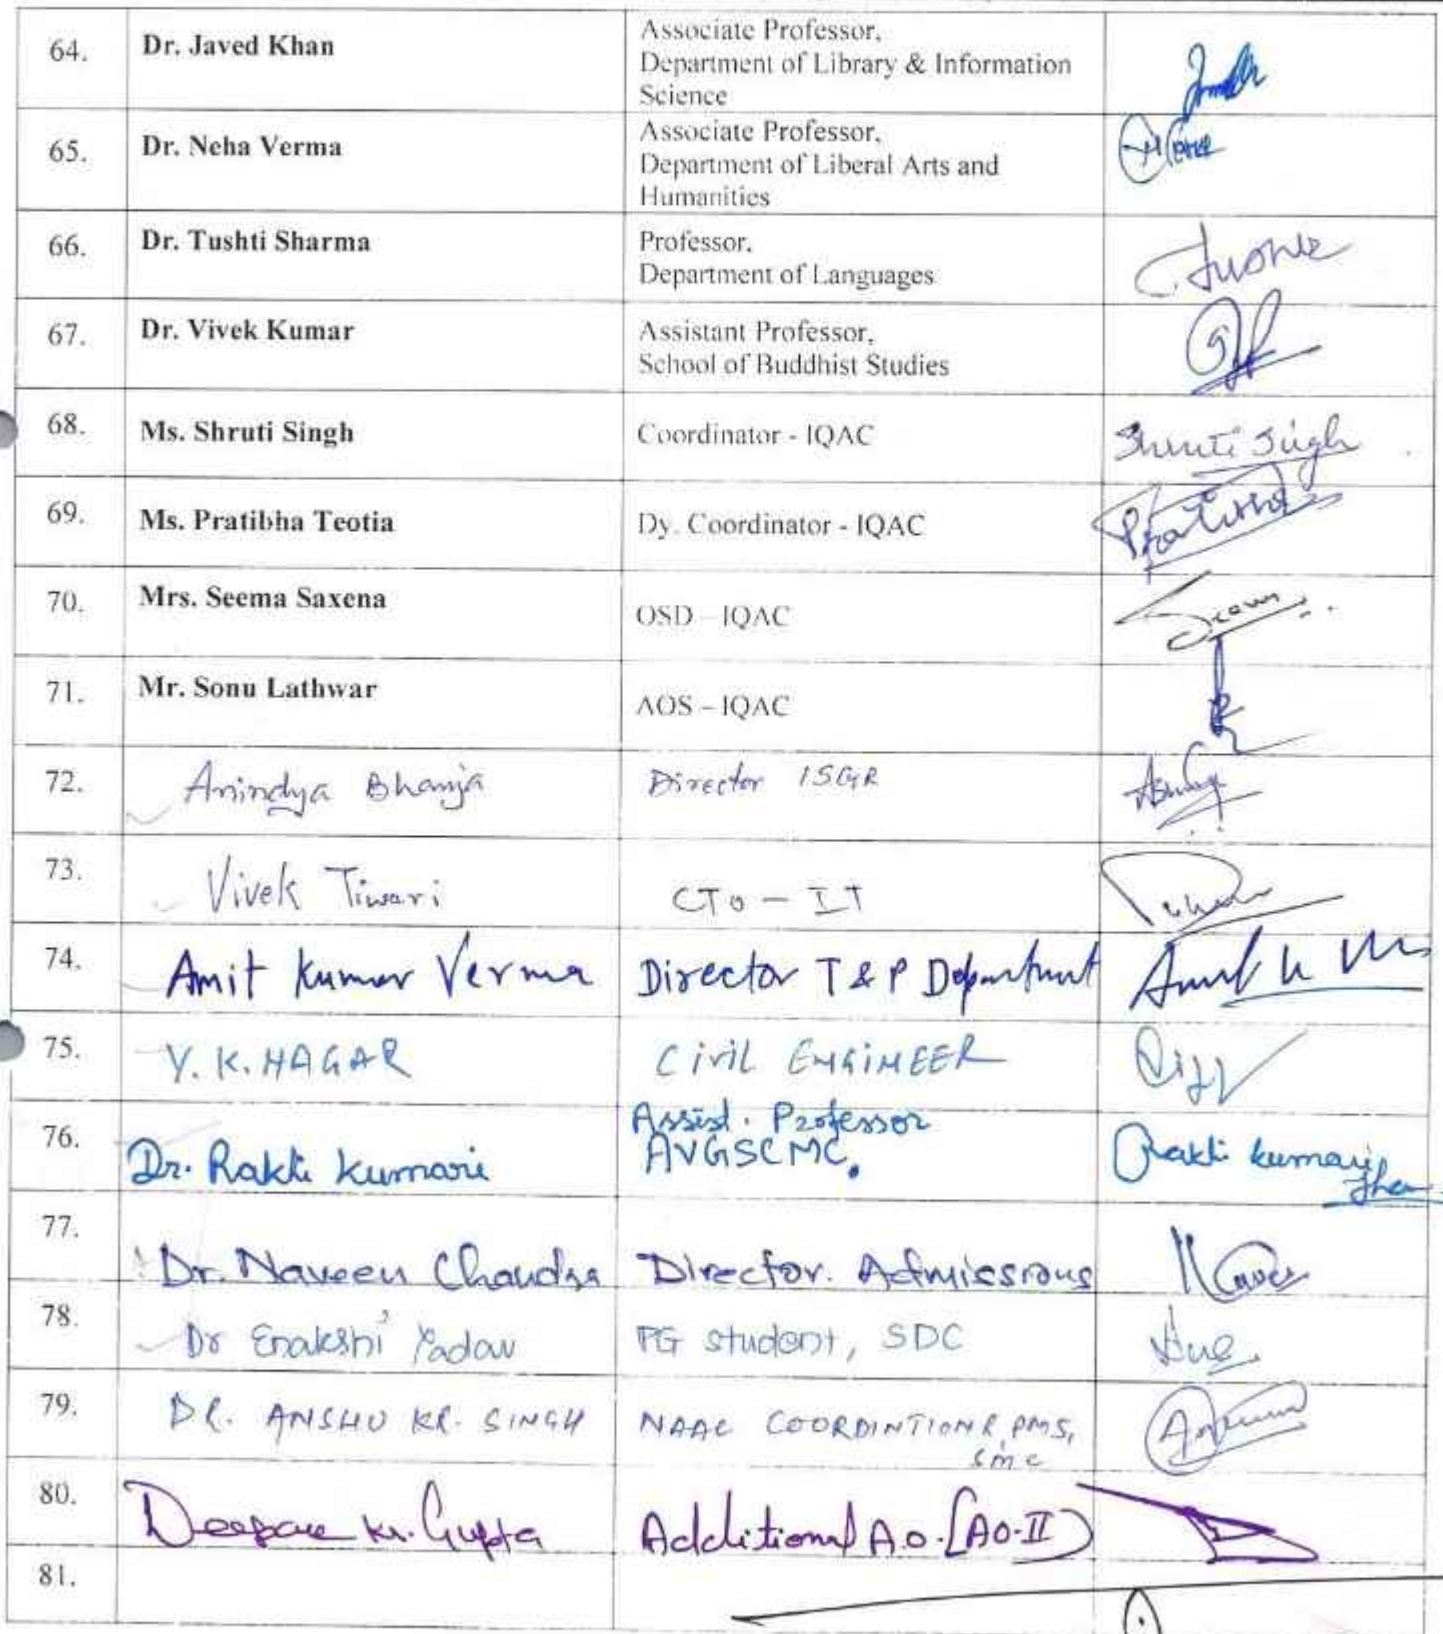 64. Dr. Javed Khan Associate Professor,
Department of Library & Information
Science
65. Dr. Neha Verma Associate Professor,
Department of Liberal Arts and
Humanities
66. Dr. Tushti Sharma Professor,
Department of Languages
67. Dr. Vivek Kumar Assistant Professor,
School of Buddhist Studies
68. Ms. Shruti Singh Coordinator - IQAC Shruti Singh
69. Ms. Pratibha Teotia Dy. Coordinator - IQAC
70. Mrs. Seema Saxena OSD - IQAC
71. Mr. Sonu Lathwar AOS – IQAC
72. Anindya Bhanja Director ISGR
73. Vivek Tiwari CTO – IT
74. Amit Kumar Verma Director T & P Department
75. Y. K. NAGAR CIVIL ENGINEER
76. Dr. Rakhi Kumari Assist. Professor
AVGSCMC. Rakhi kumari
Jha
77. Dr. Naveen Chandra Director. Admissions
78. Dr Enakshi Yadav PG student, SDC
79. DR. ANSHU KR. SINGH NAAC COORDINTIONR, PMS,
SMC
80. Deepak Kr. Gupta Additional A.O. [AO-II]
81.